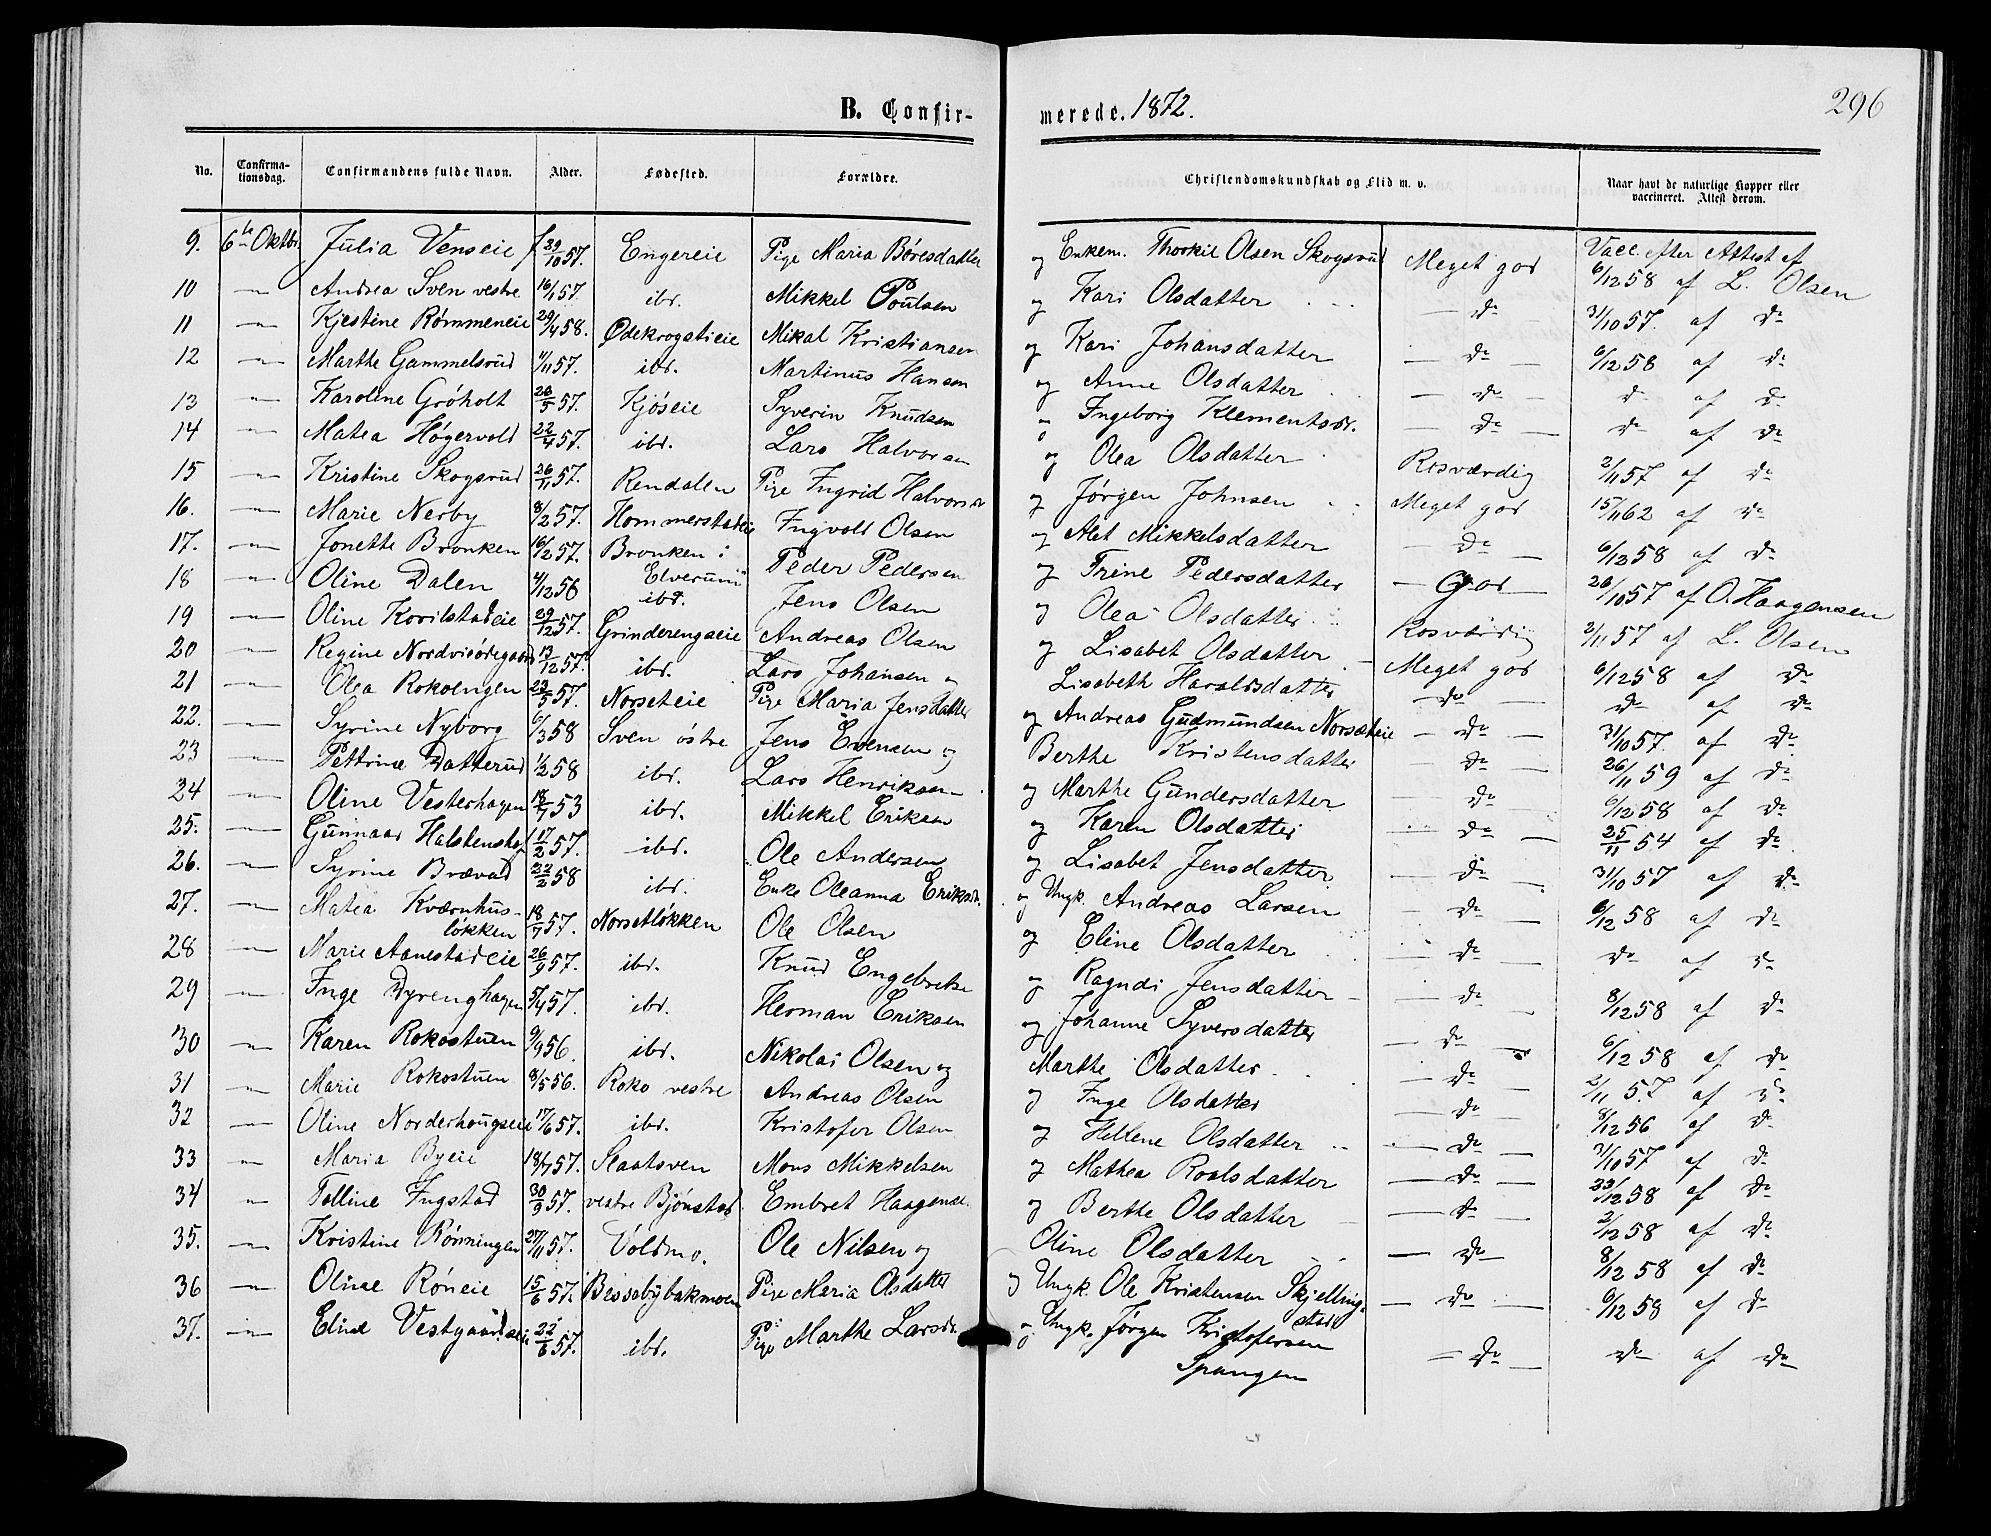 296
B. Confirmerede. 1872.
No. Confirmationsdag. Confirmandens fulde Navn. Alder. Fødested. Forældre. Christendomskundskab og Flid m. v. Naar havt de naturlige Kopper eller vaccineret. Attest derom.
9. 6te Oktbr. Julia Venseie f 29/10 57. Engereie Pige Maria Børesdatter og Enkem. Thorkil Olsen Skogsrud Meget god Vacc. efter Attest af 6/12 58 af L. Olsen
10 —"— Andrea Sven vestre 16/1 57. ibd. Mikkel Poulsen og Kari Olsdatter — do — 31/10 57. af do
11 —"— Kjestine Rømmeneie 29/4 58. Ødekrogstieie Mikal Kristiansen og Kari Johansdatter — do — 6/12 58 af do
12 —"— Marthe Gammelsrud 1/11 57. ibd. Martinus Hansen og Anne Olsdatter — do — d af d
13 —"— Karoline Gróholt 20/5 57. Kjóseie Syverin Knudsen og Ingeborg Klementsdr. — do — do af do
14 —"— Matea Høgervold 22/4 57. ibd. Lars Halvorsen og Olea Olsdatter Rosværdig 2/11 57 af do
15 —"— Kristine Skogsrud 26/11 57. Rendalen Pige Ingrid Halvorsdr og Jørgen Johnsen Meget god 15/11 62 af do
16. —"— Marie Nerby 8/2 57. Hommerstadeie Ingvold Olsen og Alet Mikkelsdatter — do — 6/12 58 af do
17. —"— Jonette Bronken 16/2 57. Bronken i Elverum Peder Pedersen og Trine Pedersdatter — God — 26/10 57 af O. Haagensen
18 —"— Oline Dalen 4/12 56 ibd. Jens Olsen og Olea Olsdatter Rosværdig 2/11 57 af L. Olsen
19 —"— Oline Korilstadeie 29/12 57. Grinderengseie Andreas Olsen og Lisabet Olsdatter Meget god 6/12 58 af do
20 —"— Regine Nordvisódegaard 13/12 57. ibd. Lars Johansen og Lisabeth Haraldsdatter — do — do af do
21 —"— Olea Rokoengen 23/5 57. Norseteie Pige Maria Jensdatter og Andreas Gudmundsen Norseteie — do — 31/10 57. af do
22. —"— Syrine Nyborg 6/3 58 Sven óstre Jens Evensen og Berthe Kristensdatter — do — 26/11 59 af do
23 —"— Pettrine Datterud 1/2 58 ibd. Lars Henriksen og Marthe Gundersdatter — do — 6/12 58 af do
24 —"— Oline Vesterhagen 18/7 53 ibd. Mikkel Eriksen og Karen Olsdatter — do — 25/11 54 af do
25. —"— Gunnaar Halstenshof 17/2 57. ibd. Ole Andersen og Lisabet Jensdatter — do — 31/10 57 af do
26. —"— Syrine Brævad 22/2 58 ibd. Enke Oleanna Eriksdr. og Ungk. Andreas Larsen — do — 6/12 58 af do
27. —"— Matea Kværnhusløkken 18/7 57. Norsetløkken Ole Olsen og Eline Olsdatter — do — do af do
28 —"— Marie Aanestadeie 26/9 57. ibd. Knud Engebretse og Ragndi Jensdatter — do — 8/12 58 af do
29 —"— Inge Dyrenghagen 5/4 57. ibd. Herman Eriksen og Johanne Syversdatter — do — 6/12 58 af do
30 —"— Karen Rokostuen 9/9 56. ibd. Nikolai Olsen og Marthe Olsdatter — do — 2/11 57 af do
31 —"— Marie Rokostuen 8/5 56. Roko vestre Andreas Olsen og Inge Olsdatter — do — 8/12 56 af do
32 —"— Oline Norderhougseie 17/6 57. ibd. Kristofer Olsen og Hellene Olsdatter — do — 31/10 57 af do
33 —"— Maria Byeie 18/7 57. Slaatsven Mons Mikkelsen og Mathea Roalsdatter — do — 22/12 58 af do
34 —"— Tolline Ingstad 30/9 57. vestre Bjónstad Embret Haagens. og Berthe Olsdatter — do — 2/12 58 af do
35. —"— Kristine Rónningen 27/11 57. Voldmo. Ole Nilsen og Oline Olsdatter — do — 8/12 58 af do
36 —"— Oline Róneie 15/6 57. Bissebybakmoen Pige Maria Olsdatter og Ungk. Ole Kristensen Skjellingstad — do — 6/12 58 af do
37. —"— Eline Vestgaardseie 22/6 57. ibd. Pige Marthe Larsdr. og Ungk. Jørgen Kristofersen Spangen — do — do af do